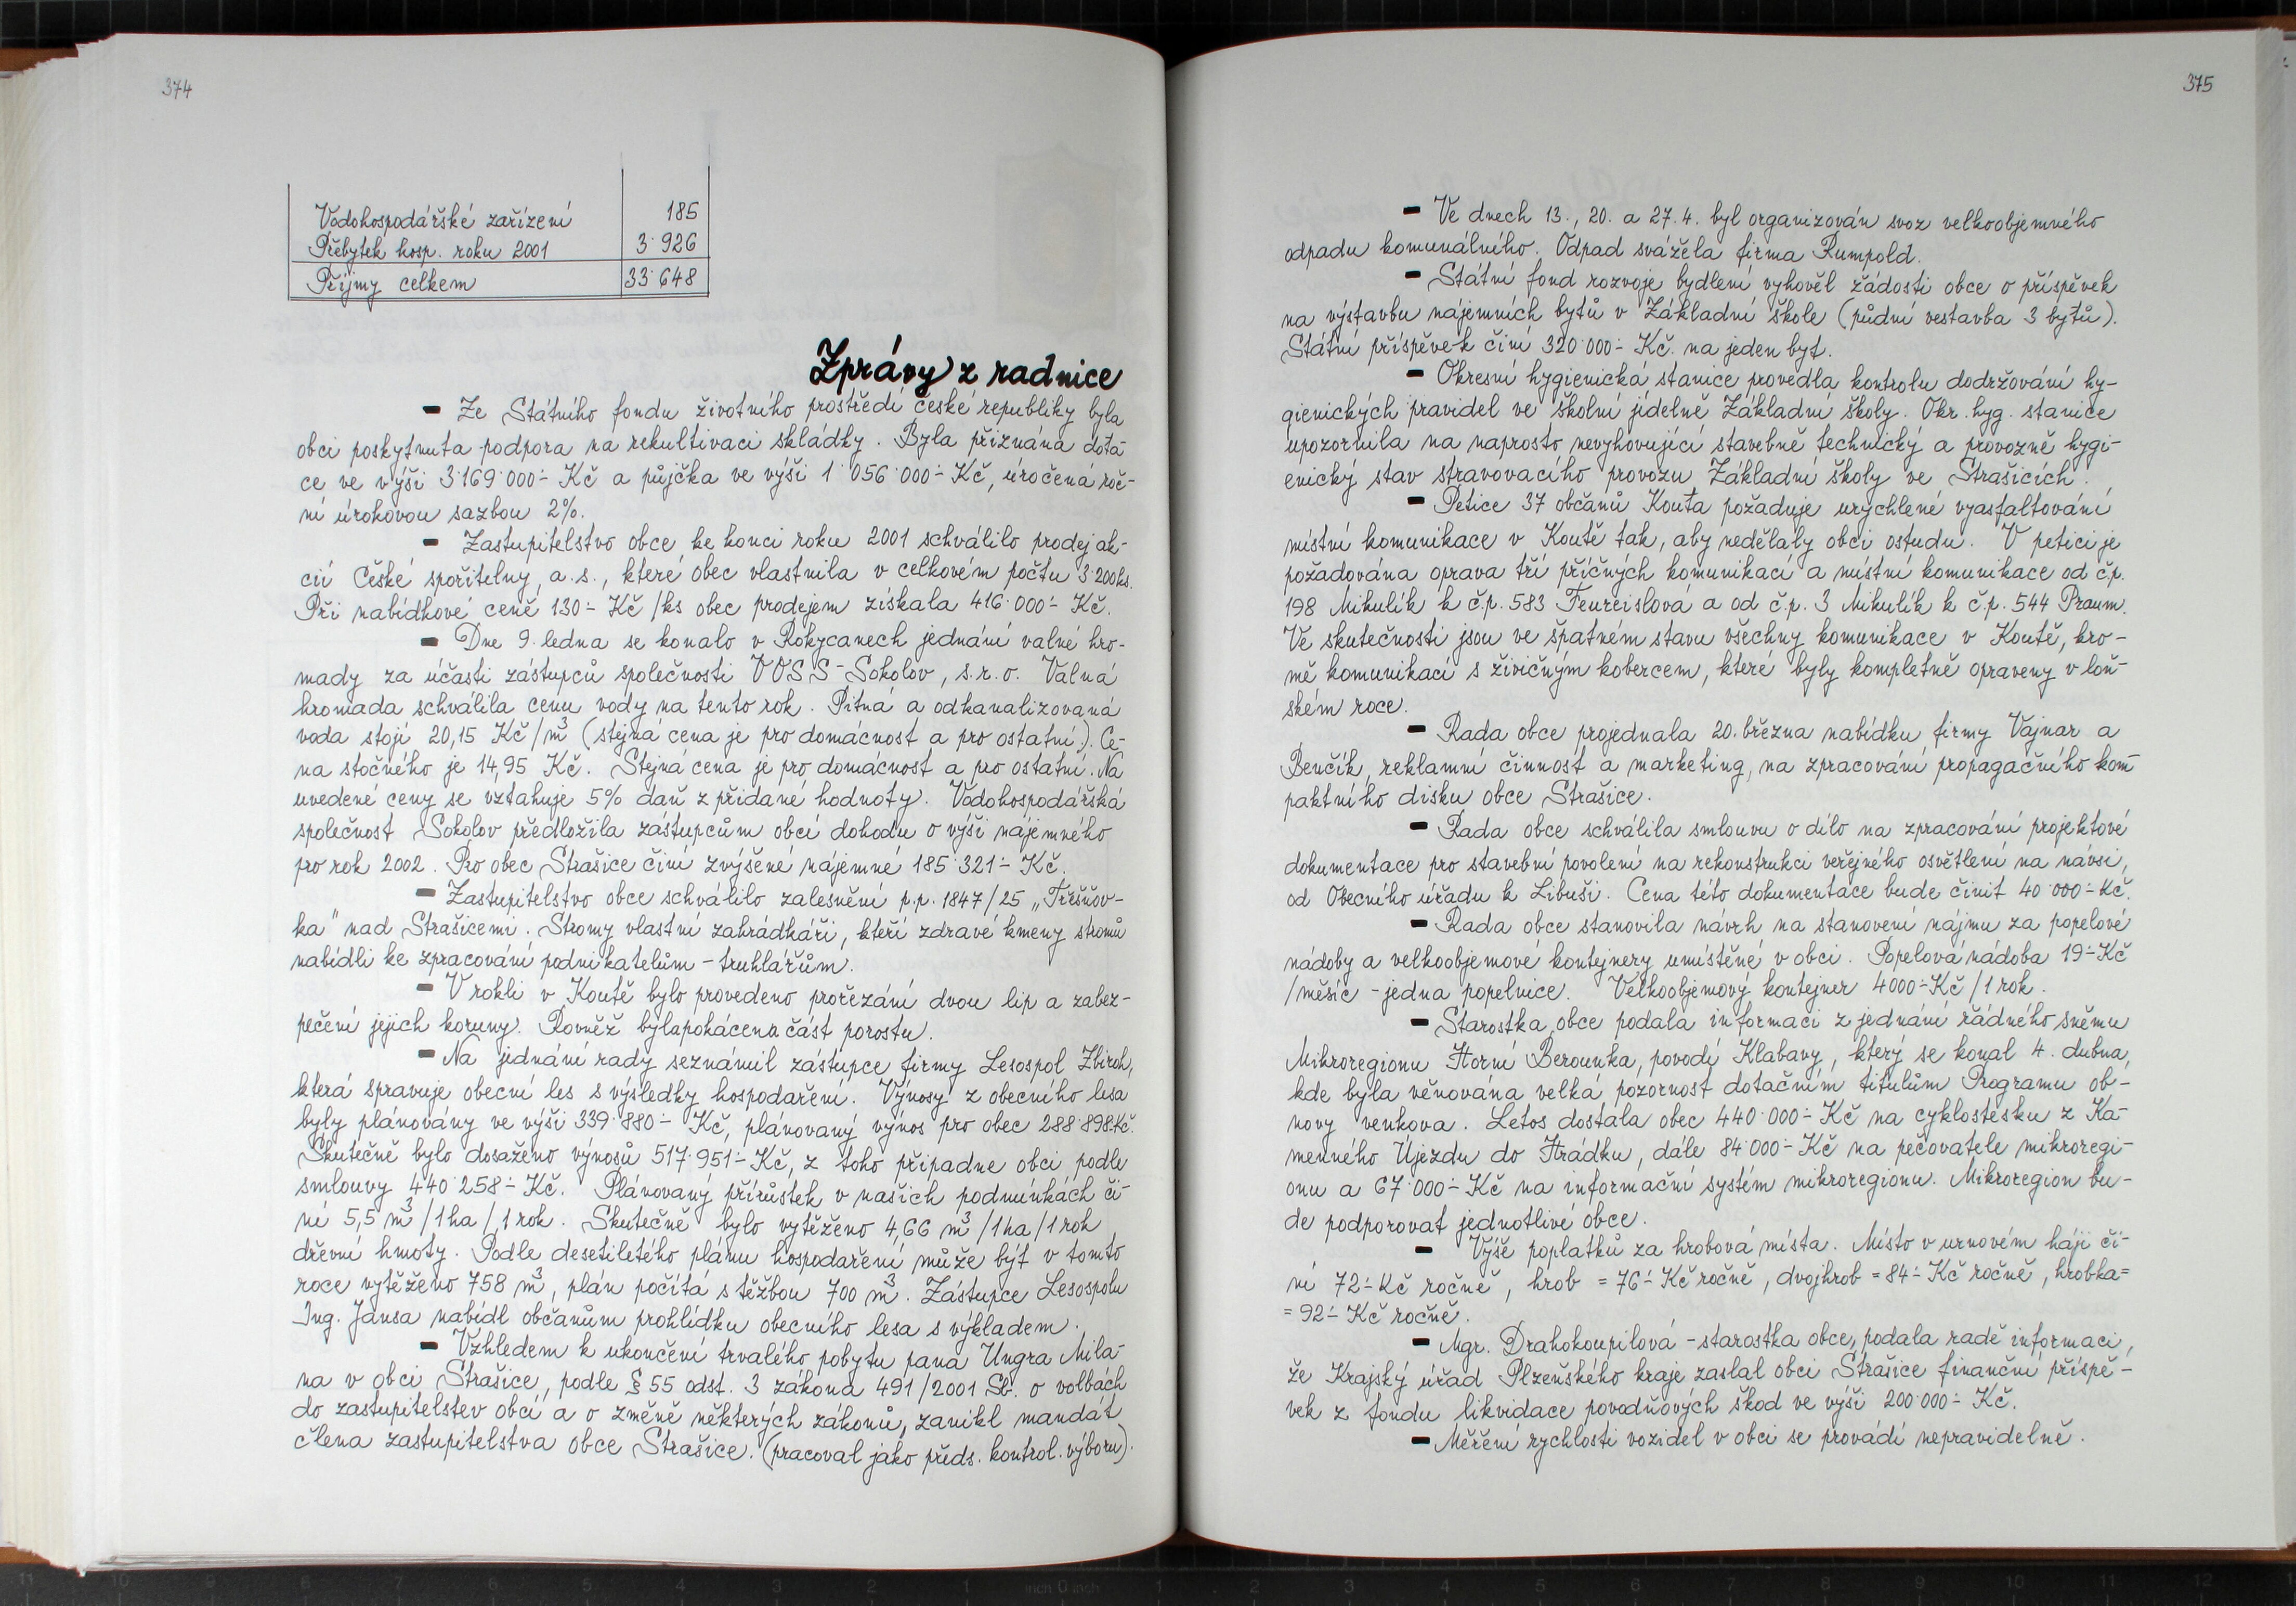 374
Vodohospodářské zařízení 185
Přebytek hosp. roku 2001 3˙926
Příjmy celkem 33˙648
Zprávy z radnice
- Ze Státního fondu životního prostředí české republiky byla
obci poskytnuta podpora na rekultivaci skládky. Byla přiznána dota-
ce ve výši 3˙169˙000.- Kč a půjčka ve výši 1˙056˙000.- Kč, úročená roč-
ní úrokovou sazbou 2%.
- Zastupitelstvo obce ke konci roku 2001 schválilo prodej ak-
cií České spořitelny, a.s., které obec vlastnila v celkovém počtu 3˙200 ks.
Při nabídkové ceně 130.- Kč/ks obec prodejem získala 416˙000.- Kč.
- Dne 9. ledna se konalo v Rokycanech jednání valné hro-
mady za účasti zástupců společnosti VOSS-Sokolov, s.r.o. Valná
hromada schválila cenu vody na tento rok. Pitná a odkanalizovaná
voda stojí 20,15 Kč/m³ (stejná cena je pro domácnost a pro ostatní). Ce-
na stočného je 14,95 Kč. Stejná cena je pro domácnost a pro ostatní. Na
uvedené ceny se vztahuje 5% daň z přidané hodnoty. Vodohospodářská
společnost Sokolov předložila zástupcům obcí dohodu o výši nájemného
pro rok 2002. Pro obec Strašice činí zvýšené nájemné 185˙321.- Kč.
- Zastupitelstvo obce schválilo zalesnění p.p. 1847/25 „Třešňov-
ka" nad Strašicemi. Stromy vlastní zahrádkáři, kteří zdravé kmeny stromů
nabídli ke zpracování podnikatelům - truhlářům.
- V rokli v Koutě bylo provedeno prořezání dvou lip a zabez-
pečení jejich koruny. Rovněž byla pokácena část porostu.
- Na jednání rady seznámil zástupce firmy Lesospol Zbiroh,
která spravuje obecní les s výsledky hospodaření. Výnosy z obecního lesa
byly plánovány ve výši 339˙880.- Kč, plánovaný výnos pro obec 288˙898 Kč.
Skutečně bylo dosaženo výnosů 517˙951.- Kč, z toho připadne obci podle
smlouvy 440˙258.- Kč. Plánovaný přírůstek v našich podmínkách či-
ní 5,5 m³/1ha/1rok. Skutečně bylo vytěženo 4,66 m³/1ha/1rok
dřevní hmoty. Podle desetiletého plánu hospodaření může být v tomto
roce vytěženo 758 m³, plán počítá s těžbou 700 m³. Zástupce Lesospolu
Ing. Jansa nabídl občanům prohlídku obecního lesa s výkladem.
- Vzhledem k ukončení trvalého pobytu pana Ungra Mila-
na v obci Strašice, podle § 55 odst. 3 zákona 491/2001 Sb. o volbách
do zastupitelstev obcí a o změně některých zákonů, zanikl mandát
člena zastupitelstva obce Strašice. (pracoval jako předs. kontrol. výboru).
375
- Ve dnech 13., 20. a 27.4. byl organizován svoz velkoobjemného
odpadu komunálního. Odpad svážela firma Rumpold.
- Státní fond rozvoje bydlení vyhověl žádosti obce o příspěvek
na výstavbu nájemních bytů v Základní škole (půdní vestavba 3 bytů).
Státní příspěvek činí 320˙000.- Kč. na jeden byt.
- Okresní hygienická stanice provedla kontrolu dodržování hy-
gienických pravidel ve školní jídelně Základní školy. Okr. hyg. stanice
upozornila na naprosto nevyhovující stavebně technický a provozně hygi-
enický stav stravovacího provozu Základní školy ve Strašicích.
- Petice 37 občanů Kouta požaduje urychlené vyasfaltování
místní komunikace v Koutě tak, aby nedělaly obci ostudu. V petici je
požadována oprava tří příčných komunikací a místní komunikace od č.p.
198 Mikulík k č.p. 583 Feureislová a od č.p. 3 Mikulík k č.p. 544 Praum.
Ve skutečnosti jsou ve špatném stavu všechny komunikace v Koutě, kro-
mě komunikací s živičným kobercem, které byly kompletně opraveny v loň-
ském roce.
- Rada obce projednala 20. března nabídku firmy Vajnar a
Benčík, reklamní činnost a marketing, na zpracování propagačního kom-
paktního disku obce Strašice.
- Rada obce schválila smlouvu o dílo na zpracování projektové
dokumentace pro stavební povolení na rekonstrukci veřejného osvětlení na návsi,
od Obecního úřadu k Libuši. Cena této dokumentace bude činit 40˙000.- Kč.
- Rada obce stanovila návrh na stanovení nájmu za popelové
nádoby a velkoobjemové kontejnery umístěné v obci. Popelová nádoba 19.- Kč
/měsíc - jedna popelnice. Velkoobjemový kontejner 4000.- Kč/1 rok.
- Starostka obce podala informaci z jednání řádného sněmu
Mikroregionu Horní Berounka, povodí Klabavy, který se konal 4. dubna,
kde byla věnována velká pozornost dotačním titulům Programu ob-
novy venkova. Letos dostala obec 440˙000.- Kč na cyklostesku z Ka-
menného Újezdu do Hrádku, dále 84˙000.- Kč na pečovatele mikroregi-
onu a 67˙000.- Kč na informační systém mikroregionu. Mikroregion bu-
de podporovat jednotlivé obce.
- Výše poplatků za hrobová místa. Místo v urnovém háji či-
ní 72.- Kč ročně, hrob = 76.- Kč ročně, dvojhrob = 84.- Kč ročně, hrobka =
= 92.- Kč ročně.
- Mgr. Drahokoupilová - starostka obce, podala radě informaci,
že Krajský úřad Plzeňského kraje zaslal obci Strašice finanční příspě-
vek z fondu likvidace povodňových škod ve výši 200˙000.- Kč.
- Měření rychlosti vozidel v obci se provádí nepravidelně.